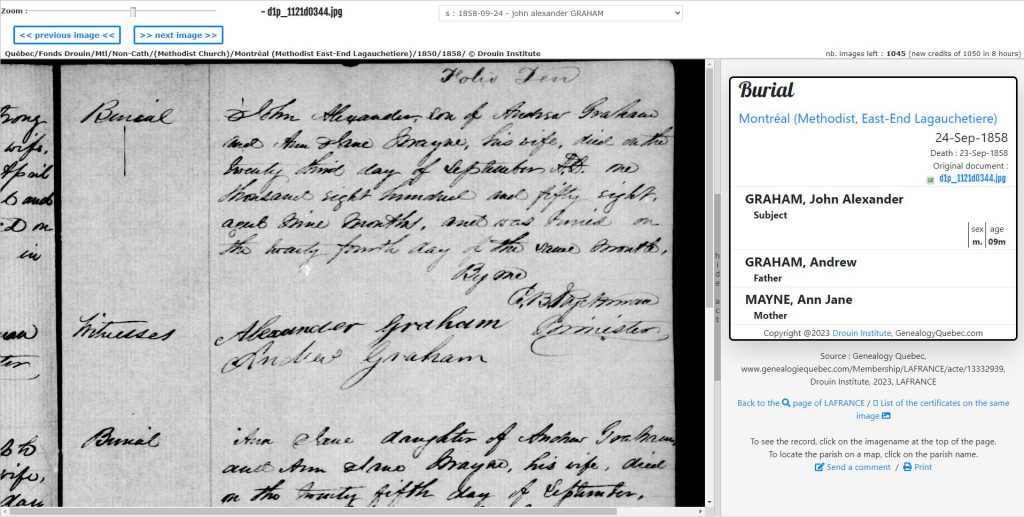 Zoom :
- d1p_1121d0344.jpg
s : 1858-09-24 - john alexander GRAHAM
<< previous image <<
>> next image >>
Québec/Fonds Drouin/Mtl/Non-Cath/(Methodist Church)/Montréal (Methodist East-End Lagauchetiere)/1850/1858/ © Drouin Institute
nb. images left : 1045 (new credits of 1050 in 8 hours)
Folio Ten
Burial
John Alexander, son of Andrew Graham
and Ann Jane Mayne, his wife, died on the
twenty third day of September A.D. one
thousand eight hundred and fifty eight,
aged Nine Months, and was buried on
the twenty fourth day of the same Month,
By me
Minister
Witnesses
Alexander Graham
Andrew Graham
Burial
Ann Jane daughter of Andrew Graham,
and Ann Jane Mayne, his wife, died
on the twenty fifth day of September,
wife,
April
and
on
in
wife,
day
hide act
Burial
Montréal (Methodist, East-End Lagauchetiere)
24-Sep-1858
Death : 23-Sep-1858
Original document :
d1p_1121d0344.jpg
GRAHAM, John Alexander
Subject
sex age
m. 09m
GRAHAM, Andrew
Father
MAYNE, Ann Jane
Mother
Copyright @2023 Drouin Institute, GenealogyQuebec.com
Source : Genealogy Quebec,
www.genealogiequebec.com/Membership/LAFRANCE/acte/13332939,
Drouin Institute, 2023, LAFRANCE
Back to the page of LAFRANCE / List of the certificates on the same
image
To see the record, click on the imagename at the top of the page.
To locate the parish on a map, click on the parish name.
Send a comment / Print